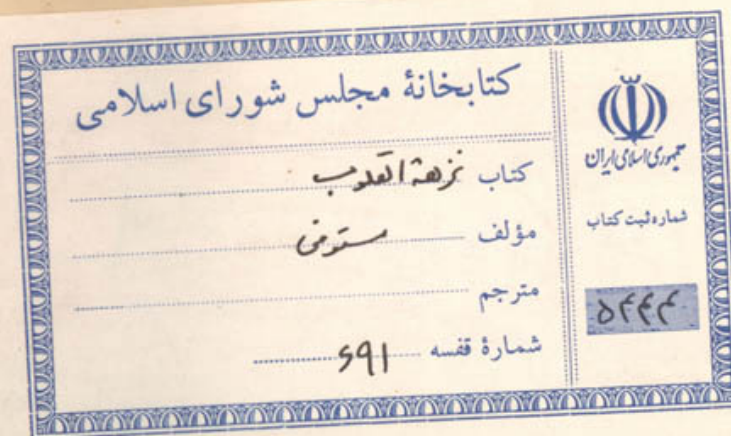 کتابخانهٔ مجلس شورای اسلامی
کتاب نزهة القلوب
مؤلف مستوفی
مترجم
شمارهٔ قفسه ۶۹۱
جمهوری اسلامی ایران
شماره ثبت کتاب